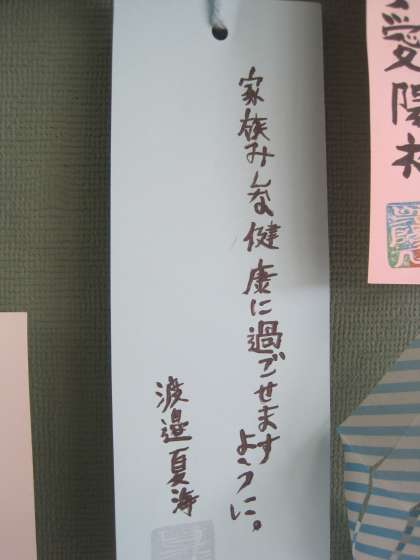 家族みんな健康に過ごせます
ように。
渡邉夏海
愛陽村